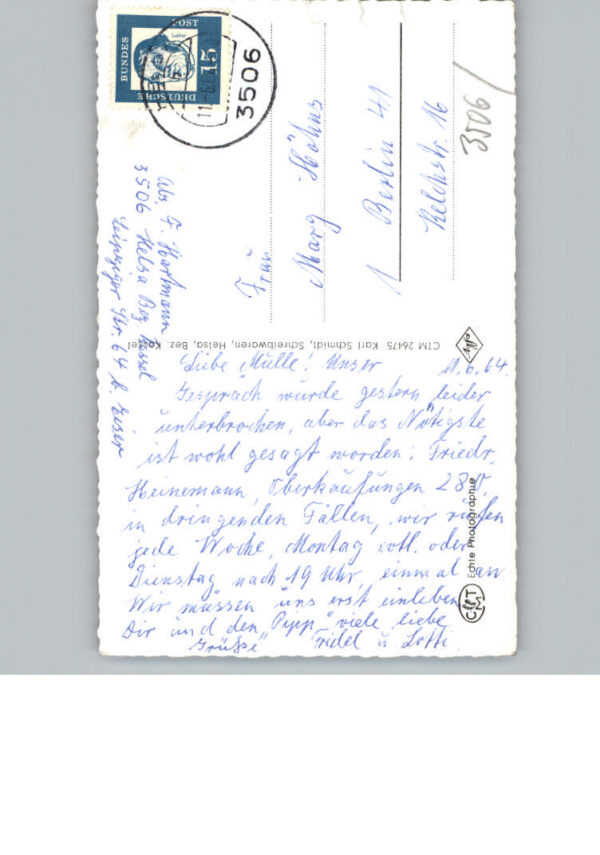 DEUTSCHE
BUNDES
POST
15
Luther
3506
3506
Abs. F. Hartmann
3506 Helsa Bez Kassel
Leipziger Str. 64 b. Geiser
Frau
Marg Höhns
1 Berlin 41
Kelchstr. 16
CTM 26475 Karl Schmidt, Schreibwaren, Helsa, Bez. Kassel
Agfa
11.6.64.
Liebe Mulle! Unser
Gespräch wurde gestern leider
unterbrochen, aber das Nötigste
ist wohl gesagt worden: Friedr.
Heinemann, Oberkaufungen 280,
in dringenden Fällen, wir rufen
jede Woche, Montag evtl. oder
Dienstag nach 19 Uhr, einmal an
Wir müssen uns erst einleben
Dir und den "Pipp" viele liebe
Grüße Fridel u Lotti
Echte Photographie
CTM